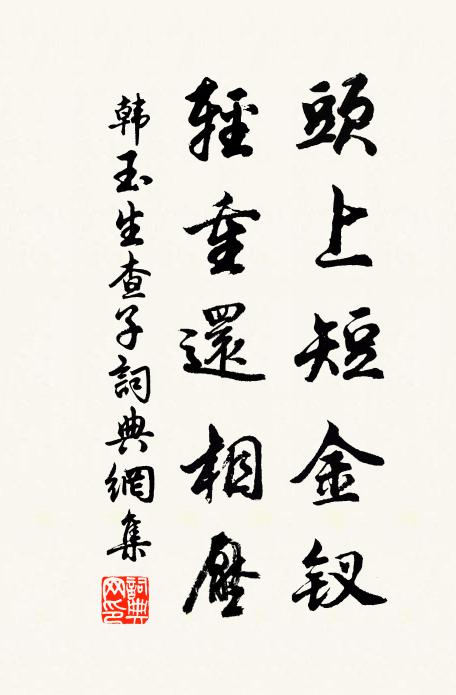 頭上短金釵
輕重還相壓
韩玉生查子詞典網集
詞典網印